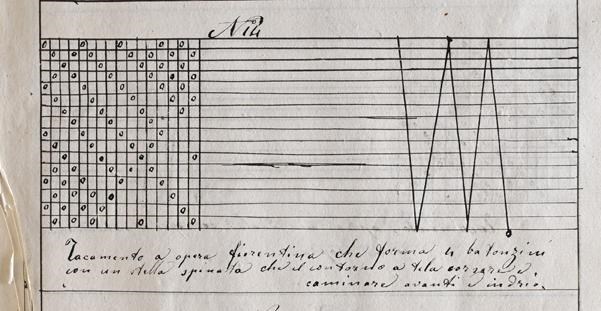 Nº 4
Tacamento a opera fiorentina che forma 4 batonzini
con un stella spinata che il contorno a tela
caminare avanti e indrio.